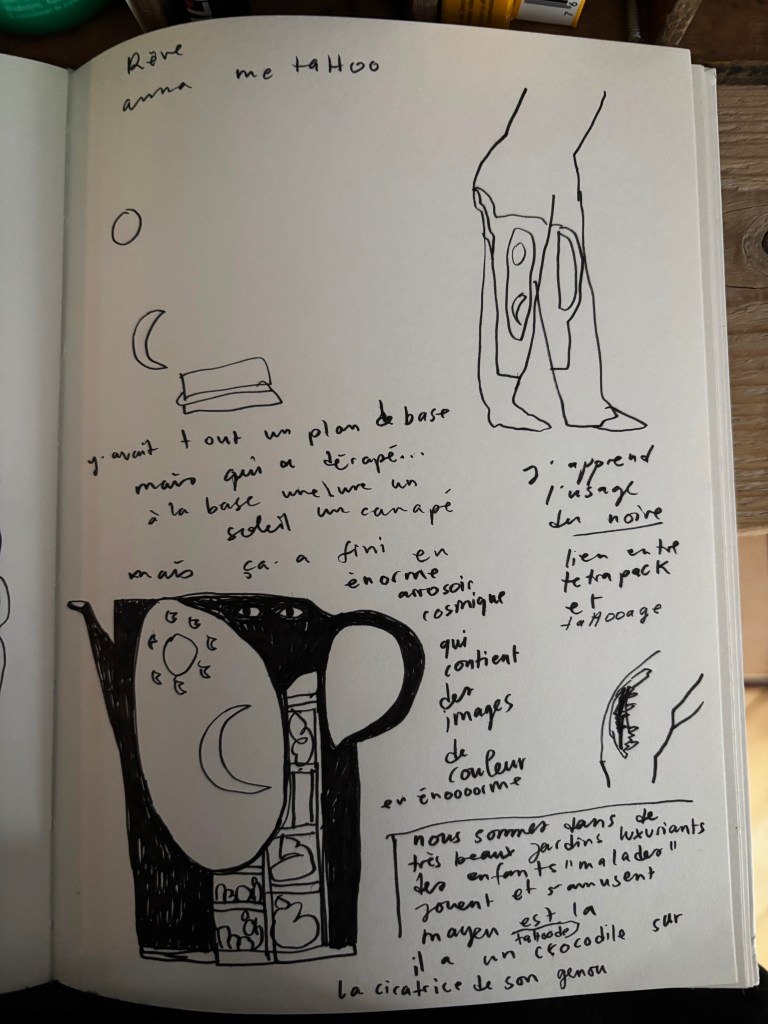 Rêve
anna me tattoo
y. avait tout un plan de base
mais qui a dérapé...
à la base une lune un
soleil un canapé
mais ça. a fini en
énorme
arrosoir
cosmique
qui
contient
des
images
de
couleur
en énoooorme
J'apprend
l'usage
du noire
lien entre
tetrapack
et
tattooage
nous sommes dans de
très beaux jardins luxuriants
des enfants "malades"
jouent et s'amusent
mayen est la
tattoode
il a un crocodile sur
la cicatrice de son genou
76